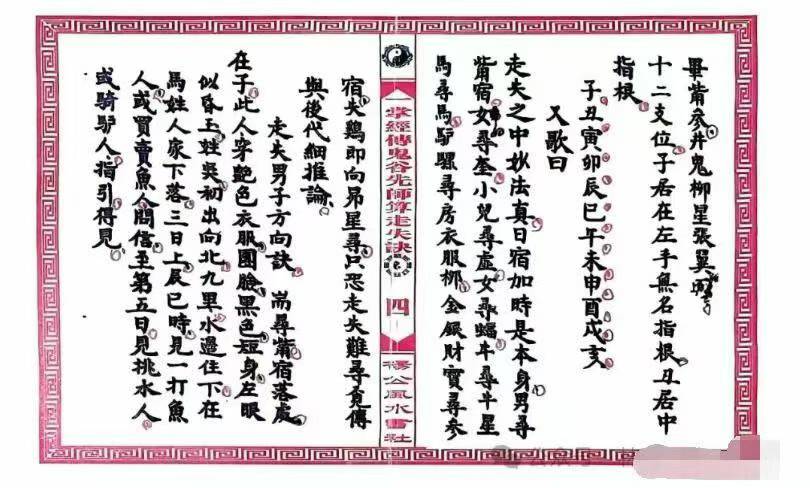 畢觜參井鬼柳星張翼軫
十二支位子居在左手無名指根丑居中
指根
子丑寅卯辰巳午未申酉戌亥
又歌曰
走失之中妙法真日宿加時是本身男尋
觜宿女尋奎小兒尋虛女尋蝠牛尋牛星
馬尋馬驢騾尋房衣服柳金銀財寶尋參
掌經傳鬼谷先師算走失訣
四
楊公風水書社
宿失鷄即向昴星尋只恐走失難尋覓傳
與後代細推論
走失男子方向訣 耑尋觜宿落處
在子此人穿艷色衣服團臉黑色短身左眼
似昏玉姓吳初出向北九里水邊住下在
馬姓人家下落三日上辰巳時見一打魚
人或買賣魚人問信至第五日見挑水人
或騎驴人指引得見
公众号